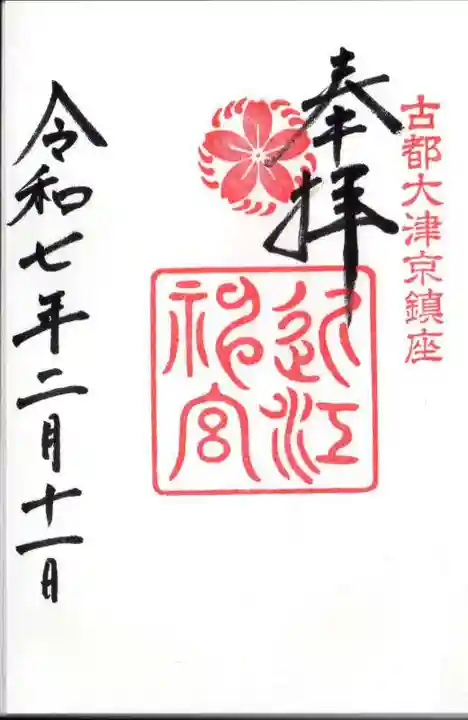 古都大津京鎮座
奉拝
近江
神宮
令和七年二月十一日